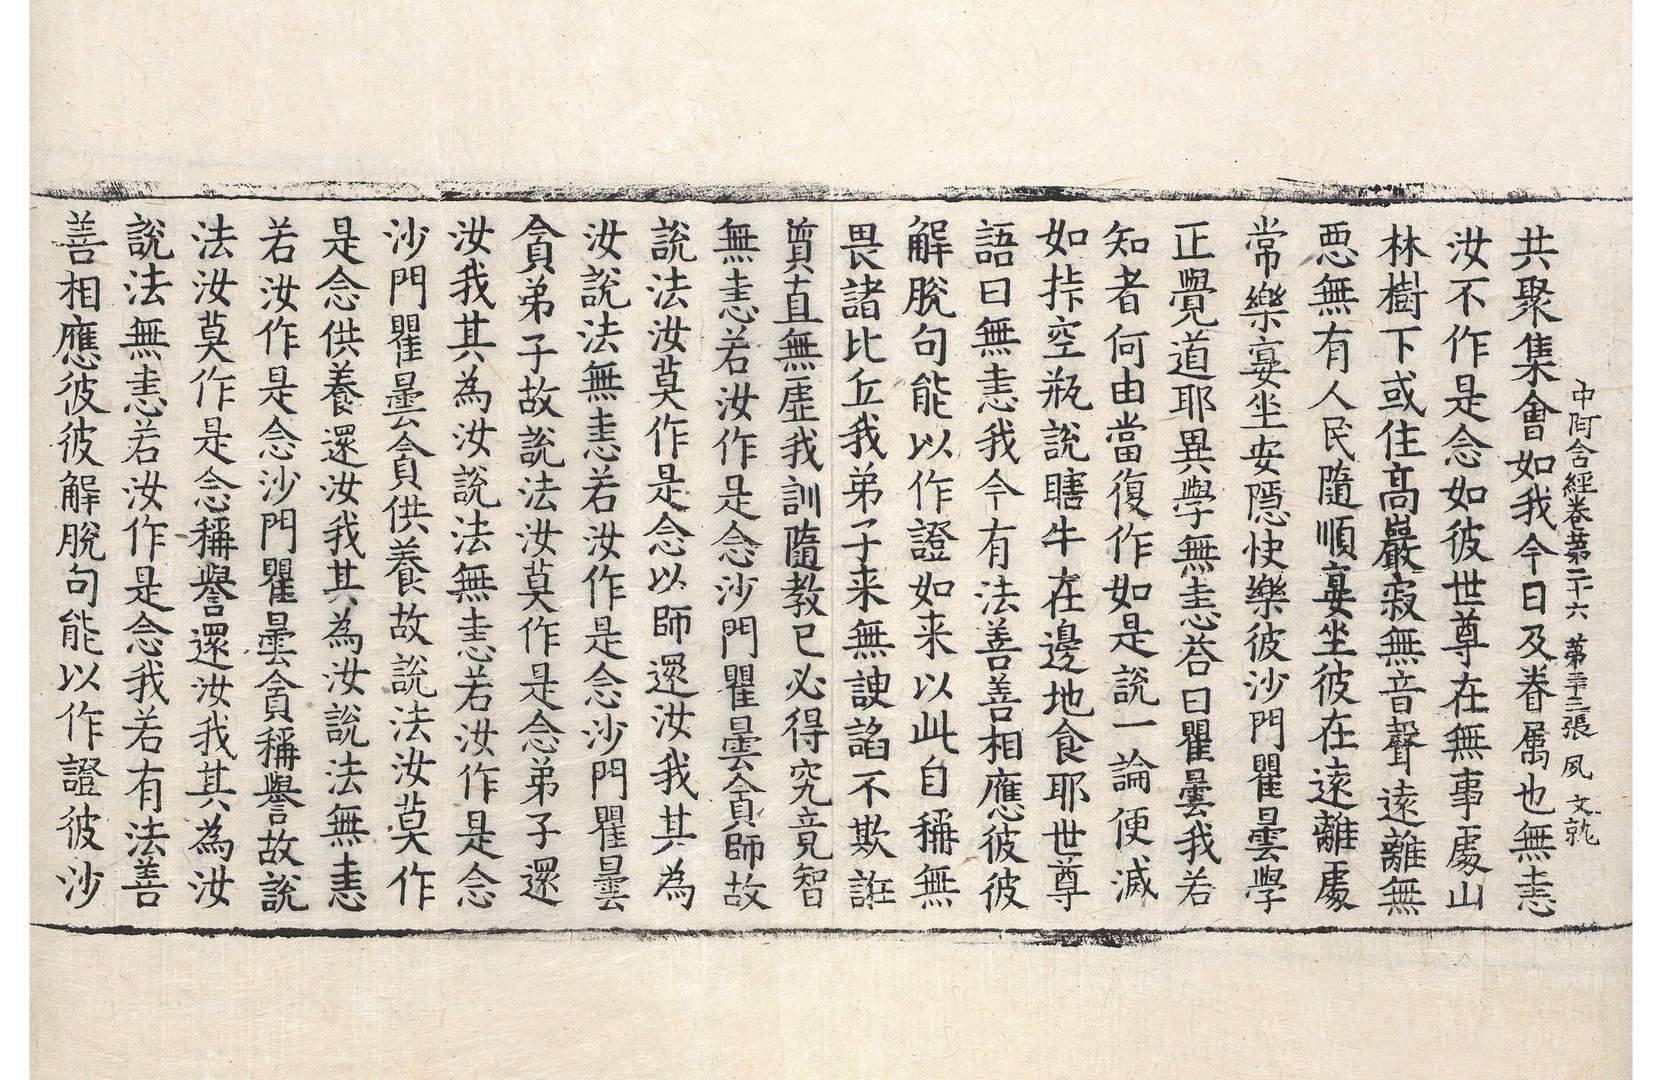 中阿含經卷第二十六 第三十三張 夙 文就
共聚集會如我今日及眷属也無恚
汝不作是念如彼世尊在無事處山
林樹下或住高巖寂無音聲遠離無
惡無有人民隨順宴坐彼在遠離處
常樂宴坐安隱快樂彼沙門瞿曇學
正覺道耶異學無恚荅曰瞿曇我若
知者何由當復作如是說一論便滅
如挊空瓶說瞎牛在邊地食耶世尊
語曰無恚我今有法善善相應彼彼
解脫句能以作證如来以此自稱無
畏諸比丘我弟子来無諛諂不欺誑
質直無虛我訓隨教已必得究竟智
無恚若汝作是念沙門瞿曇貪師故
說法汝莫作是念以師還汝我其為
汝說法無恚若汝作是念沙門瞿曇
貪弟子故說法汝莫作是念弟子還
汝我其為汝說法無恚若汝作是念
沙門瞿曇貪供養故說法汝莫作
是念供養還汝我其為汝說法無恚
若汝作是念沙門瞿曇貪稱譽故說
法汝莫作是念稱譽還汝我其為汝
說法無恚若汝作是念我若有法善
善相應彼彼解脫句能以作證彼沙